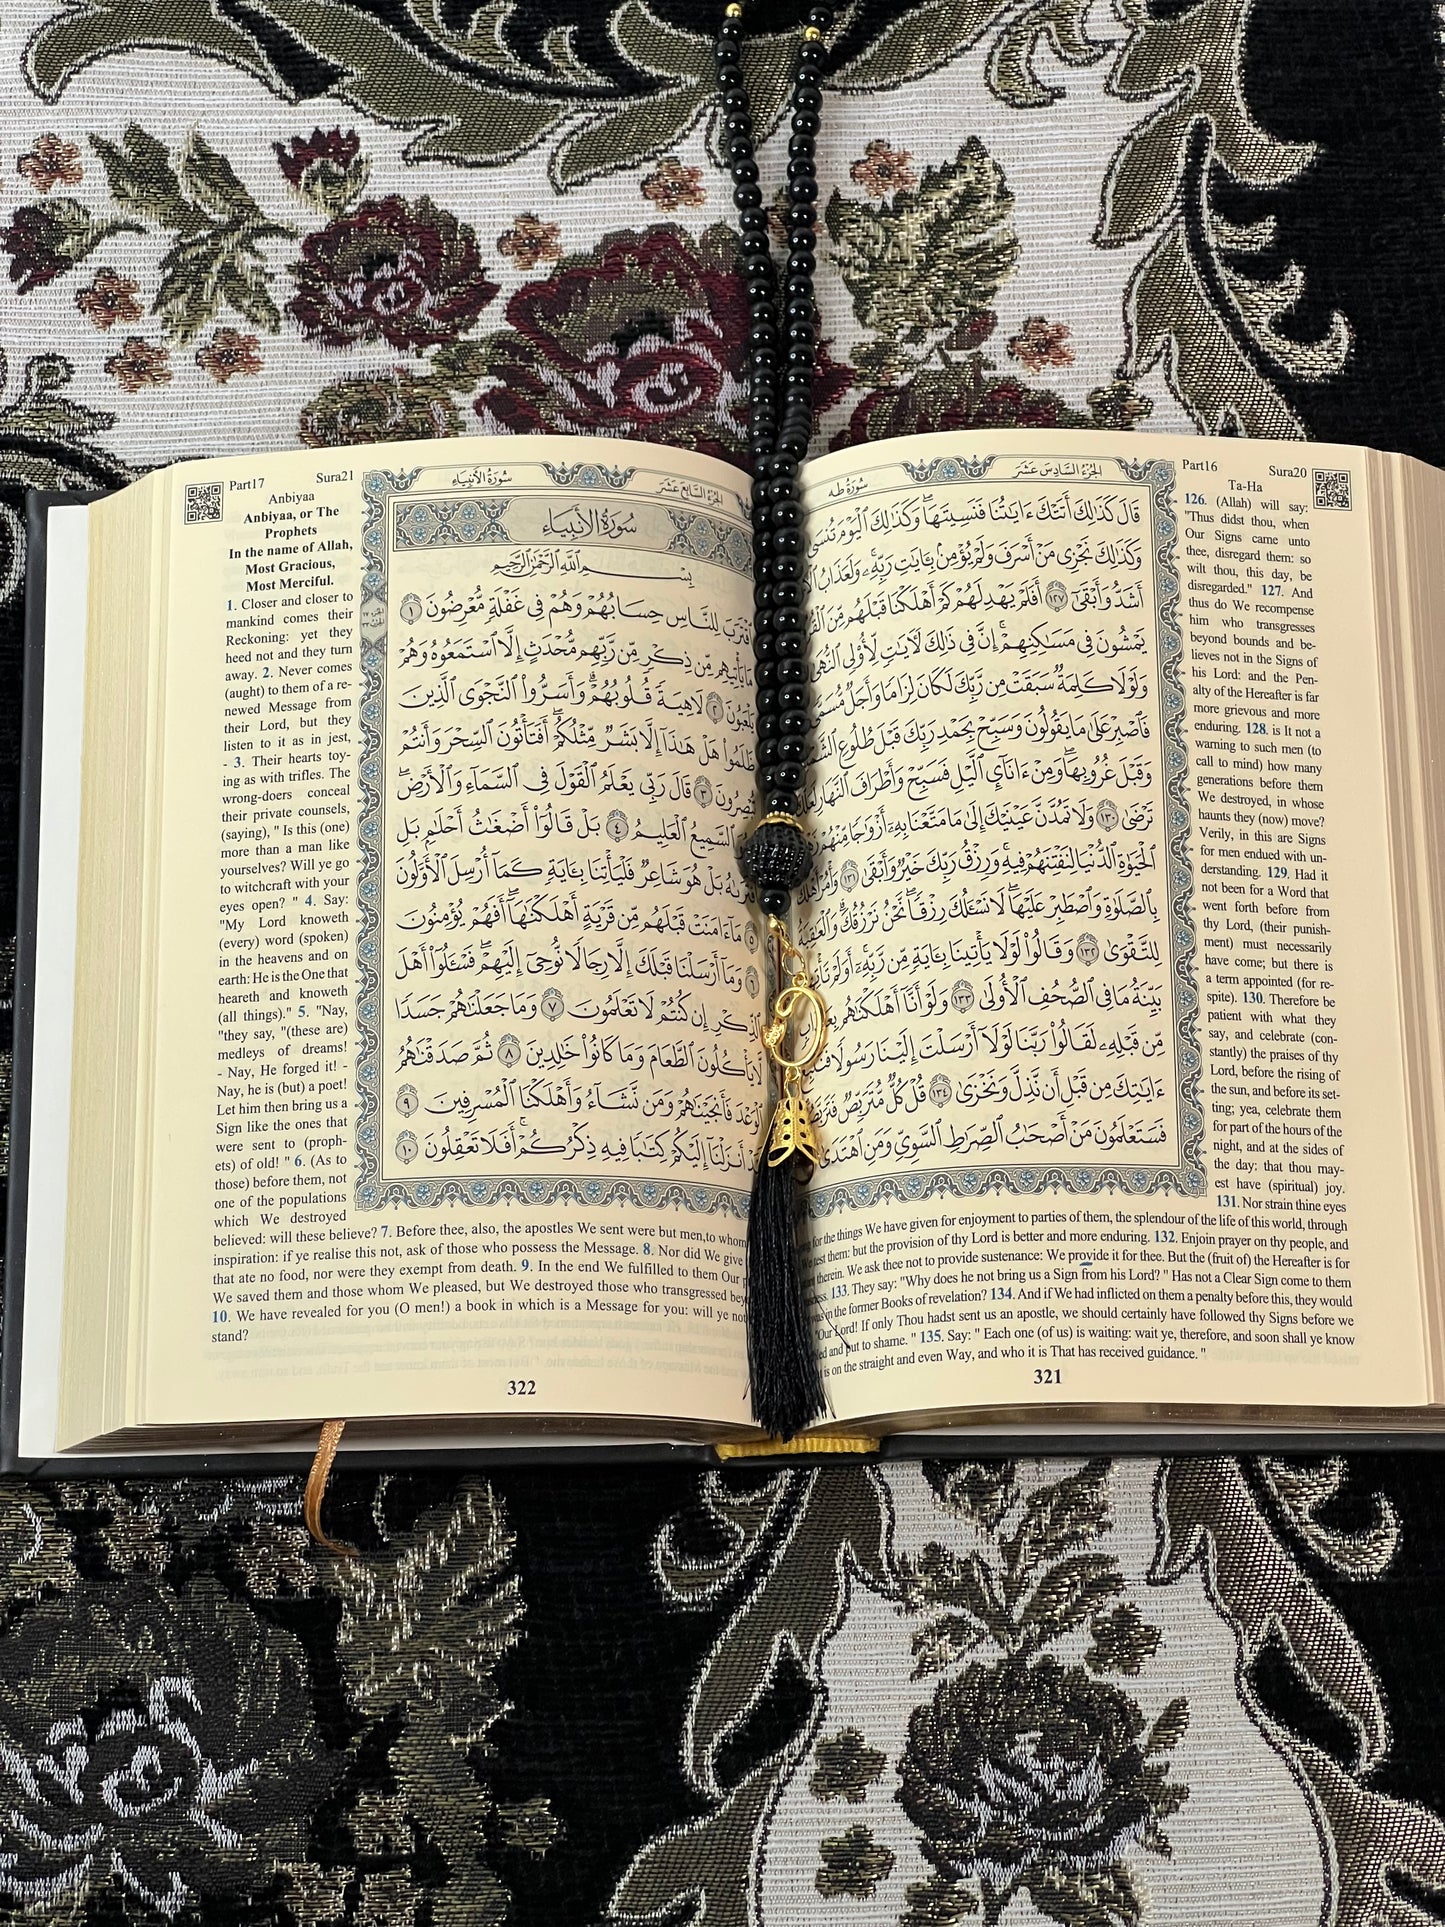 الجُزءُ السَّادِسَ عَشَرَ
سُورَةُ طه
قَالَ كَذَٰلِكَ أَتَتْكَ ءَايَٰتُنَا فَنَسِيتَهَا ۖ وَكَذَٰلِكَ ٱلْيَوْمَ تُنسَىٰ
وَكَذَٰلِكَ نَجْزِى مَنْ أَسْرَفَ وَلَمْ يُؤْمِنۢ بِـَٔايَٰتِ رَبِّهِۦ ۚ وَلَعَذَابُ
أَشَدُّ وَأَبْقَىٰٓ ١٢٧ أَفَلَمْ يَهْدِ لَهُمْ كَمْ أَهْلَكْنَا قَبْلَهُم مِّنَ
يَمْشُونَ فِى مَسَٰكِنِهِمْ ۗ إِنَّ فِى ذَٰلِكَ لَـَٔايَٰتٍ لِّأُو۟لِى ٱلنُّهَىٰ
وَلَوْلَا كَلِمَةٌ سَبَقَتْ مِن رَّبِّكَ لَكَانَ لِزَامًا وَأَجَلٌ مُّسَمًّى
فَٱصْبِرْ عَلَىٰ مَا يَقُولُونَ وَسَبِّحْ بِحَمْدِ رَبِّكَ قَبْلَ طُلُوعِ
وَقَبْلَ غُرُوبِهَا ۖ وَمِنْ ءَانَآئِ ٱلَّيْلِ فَسَبِّحْ وَأَطْرَافَ ٱلنَّهَارِ
تَرْضَىٰ ١٣٠ وَلَا تَمُدَّنَّ عَيْنَيْكَ إِلَىٰ مَا مَتَّعْنَا بِهِۦٓ أَزْوَٰجًا مِّنْهُمْ
ٱلْحَيَوٰةِ ٱلدُّنْيَا لِنَفْتِنَهُمْ فِيهِ ۚ وَرِزْقُ رَبِّكَ خَيْرٌ وَأَبْقَىٰ ١٣١ وَأْمُرْ أَهْلَكَ
بِٱلصَّلَوٰةِ وَٱصْطَبِرْ عَلَيْهَا ۖ لَا نَسْـَٔلُكَ رِزْقًا ۖ نَّحْنُ نَرْزُقُكَ ۗ وَٱلْعَٰقِبَةُ
لِلتَّقْوَىٰ ١٣٢ وَقَالُوا۟ لَوْلَا يَأْتِينَا بِـَٔايَةٍ مِّن رَّبِّهِۦٓ ۚ أَوَلَمْ
بَيِّنَةُ مَا فِى ٱلصُّحُفِ ٱلْأُولَىٰ ١٣٣ وَلَوْ أَنَّآ أَهْلَكْنَٰهُم
مِّن قَبْلِهِۦ لَقَالُوا۟ رَبَّنَا لَوْلَآ أَرْسَلْتَ إِلَيْنَا رَسُولًا
ءَايَٰتِكَ مِن قَبْلِ أَن نَّذِلَّ وَنَخْزَىٰ ١٣٤ قُلْ كُلٌّ مُّتَرَبِّصٌ
فَسَتَعْلَمُونَ مَنْ أَصْحَٰبُ ٱلصِّرَٰطِ ٱلسَّوِىِّ وَمَنِ ٱهْتَدَىٰ
Part16
Sura20
Ta-Ha
126. (Allah) will say:
"Thus didst thou, when
Our Signs came unto
thee, disregard them: so
wilt thou, this day, be
disregarded." 127. And
thus do We recompense
him who transgresses
beyond bounds and be-
lieves not in the Signs of
his Lord: and the Pen-
alty of the Hereafter is far
more grievous and more
enduring. 128. is It not a
warning to such men (to
call to mind) how many
generations before them
We destroyed, in whose
haunts they (now) move?
Verily, in this are Signs
for men endued with un-
derstanding. 129. Had it
not been for a Word that
went forth before from
thy Lord, (their punish-
ment) must necessarily
have come; but there is
a term appointed (for re-
spite). 130. Therefore be
patient with what they
say, and celebrate (con-
stantly) the praises of thy
Lord, before the rising of
the sun, and before its set-
ting; yea, celebrate them
for part of the hours of the
night, and at the sides of
the day: that thou may-
est have (spiritual) joy.
131. Nor strain thine eyes
for the things We have given for enjoyment to parties of them, the splendour of the life of this world, through
test them: but the provision of thy Lord is better and more enduring. 132. Enjoin prayer on thy people, and
therein. We ask thee not to provide sustenance: We provide it for thee. But the (fruit of) the Hereafter is for
133. They say: "Why does he not bring us a Sign from his Lord? " Has not a Clear Sign come to them
in the former Books of revelation? 134. And if We had inflicted on them a penalty before this, they would
"Our Lord! If only Thou hadst sent us an apostle, we should certainly have followed thy Signs before we
and put to shame. " 135. Say: " Each one (of us) is waiting: wait ye, therefore, and soon shall ye know
is on the straight and even Way, and who it is That has received guidance. "
321
Part17
Sura21
سُورَةُ الأَنبِيَاء
الجُزءُ السَّابِعَ عَشَرَ
سُورَةُ الأَنبِيَاءِ
بِسْمِ ٱللَّهِ ٱلرَّحْمَٰنِ ٱلرَّحِيمِ
ٱقْتَرَبَ لِلنَّاسِ حِسَابُهُمْ وَهُمْ فِى غَفْلَةٍ مُّعْرِضُونَ ١
مَا يَأْتِيهِم مِّن ذِكْرٍ مِّن رَّبِّهِم مُّحْدَثٍ إِلَّا ٱسْتَمَعُوهُ وَهُمْ
يَلْعَبُونَ ٢ لَاهِيَةً قُلُوبُهُمْ ۗ وَأَسَرُّوا۟ ٱلنَّجْوَى ٱلَّذِينَ
ظَلَمُوا۟ هَلْ هَٰذَآ إِلَّا بَشَرٌ مِّثْلُكُمْ ۖ أَفَتَأْتُونَ ٱلسِّحْرَ وَأَنتُمْ
تُبْصِرُونَ ٣ قَالَ رَبِّى يَعْلَمُ ٱلْقَوْلَ فِى ٱلسَّمَآءِ وَٱلْأَرْضِ ۖ
ٱلسَّمِيعُ ٱلْعَلِيمُ ٤ بَلْ قَالُوٓا۟ أَضْغَٰثُ أَحْلَٰمٍۭ بَلِ
ٱفْتَرَىٰهُ بَلْ هُوَ شَاعِرٌ فَلْيَأْتِنَا بِـَٔايَةٍ كَمَآ أُرْسِلَ ٱلْأَوَّلُونَ
٥ مَآ ءَامَنَتْ قَبْلَهُم مِّن قَرْيَةٍ أَهْلَكْنَٰهَآ ۖ أَفَهُمْ يُؤْمِنُونَ
٦ وَمَآ أَرْسَلْنَا قَبْلَكَ إِلَّا رِجَالًا نُّوحِىٓ إِلَيْهِمْ ۖ فَسْـَٔلُوٓا۟ أَهْلَ
ٱلذِّكْرِ إِن كُنتُمْ لَا تَعْلَمُونَ ٧ وَمَا جَعَلْنَٰهُمْ جَسَدًا
لَّا يَأْكُلُونَ ٱلطَّعَامَ وَمَا كَانُوا۟ خَٰلِدِينَ ٨ ثُمَّ صَدَقْنَٰهُمُ
ٱلْوَعْدَ فَأَنجَيْنَٰهُمْ وَمَن نَّشَآءُ وَأَهْلَكْنَا ٱلْمُسْرِفِينَ ٩
أَنزَلْنَآ إِلَيْكُمْ كِتَٰبًا فِيهِ ذِكْرُكُمْ ۖ أَفَلَا تَعْقِلُونَ ١٠
Anbiyaa
Anbiyaa, or The
Prophets
In the name of Allah,
Most Gracious,
Most Merciful.
1. Closer and closer to
mankind comes their
Reckoning: yet they
heed not and they turn
away. 2. Never comes
(aught) to them of a re-
newed Message from
their Lord, but they
listen to it as in jest,
- 3. Their hearts toy-
ing as with trifles. The
wrong-doers conceal
their private counsels,
(saying), " Is this (one)
more than a man like
yourselves? Will ye go
to witchcraft with your
eyes open? " 4. Say:
"My Lord knoweth
(every) word (spoken)
in the heavens and on
earth: He is the One that
heareth and knoweth
(all things)." 5. "Nay,
"they say, "(these are)
medleys of dreams!
- Nay, He forged it! -
Nay, he is (but) a poet!
Let him then bring us a
Sign like the ones that
were sent to (proph-
ets) of old! " 6. (As to
those) before them, not
one of the populations
which We destroyed
believed: will these believe? 7. Before thee, also, the apostles We sent were but men,to whom
inspiration: if ye realise this not, ask of those who possess the Message. 8. Nor did We give
that ate no food, nor were they exempt from death. 9. In the end We fulfilled to them Our
We saved them and those whom We pleased, but We destroyed those who transgressed
10. We have revealed for you (O men!) a book in which is a Message for you: will ye not
stand?
322